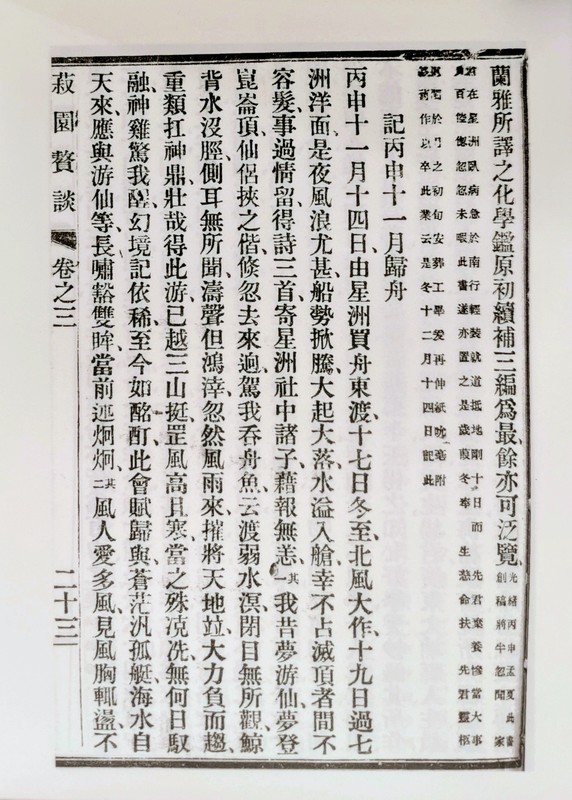 蘭雅所譯之化學鑑原初續補三編爲最餘亦可泛覽
光緒丙申孟夏此書
創稿將半忽聞家
君在星洲臥病急於南行輕裝就道抵地剛十日而 先君棄養慘當大事
百 惚忽忽未暇此書遂亦置之是歲葭冬奉 生慈命扶 先君靈柩
於月之初旬安葬工畢爰再伸紙吮毫附
舊作以卒此業云是冬十二月十四日記此
記丙申十一月歸舟
丙申十一月十四日、由星洲買舟東渡、十七日冬至、北風大作、十九日過七
洲洋面、是夜風浪尤甚、船勢掀騰、大起大落、水溢入艙、幸不占滅頂者、問不
容髮、事過情留、得詩三首、寄星洲社中諸子、藉報無恙、其一我昔夢游仙、夢登
崑崙頂、仙侶挾之偕、倏忽去來逈、駕我吞舟魚、云渡弱水溟、閉目無所觀、鯨
背水沒脛、側耳無所聞、濤聲但鴻涬、忽然風雨來、摧將天地竝、大力負而趨、
重類扛神鼎、壯哉得此游、已越三山挺、罡風高且寒、當之殊冼、無何日馭
融、神雞驚我醒、幻境記依稀、至今如酩酊、此會賦歸與、蒼茫汎孤艇、海水自
天來、應與游仙等、長嘯豁雙眸、當前炯炯、其二風人愛多風、見風胸輒盪、不
菽園贅談 卷之三 二十三